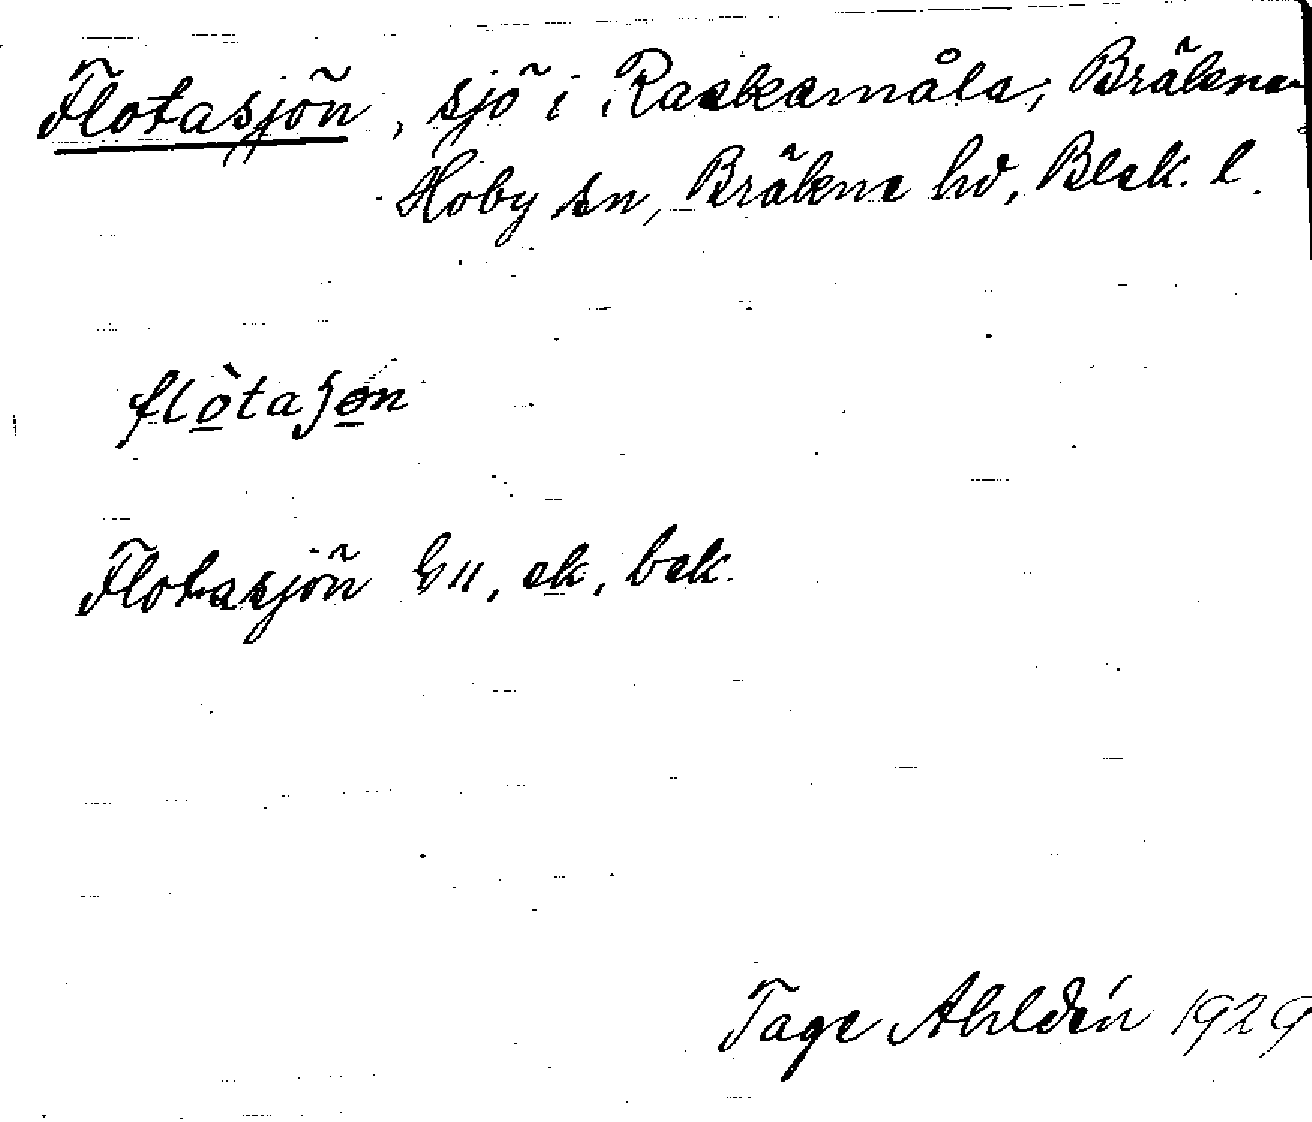 Flotasjön, sjö i Raskamåla, Bräkne-
Hoby sn, Bräkne hd, Blek. l.
flò̲taʃø̲n
Flotasjön G11, ek, bek.
Tage Ahldén 1929